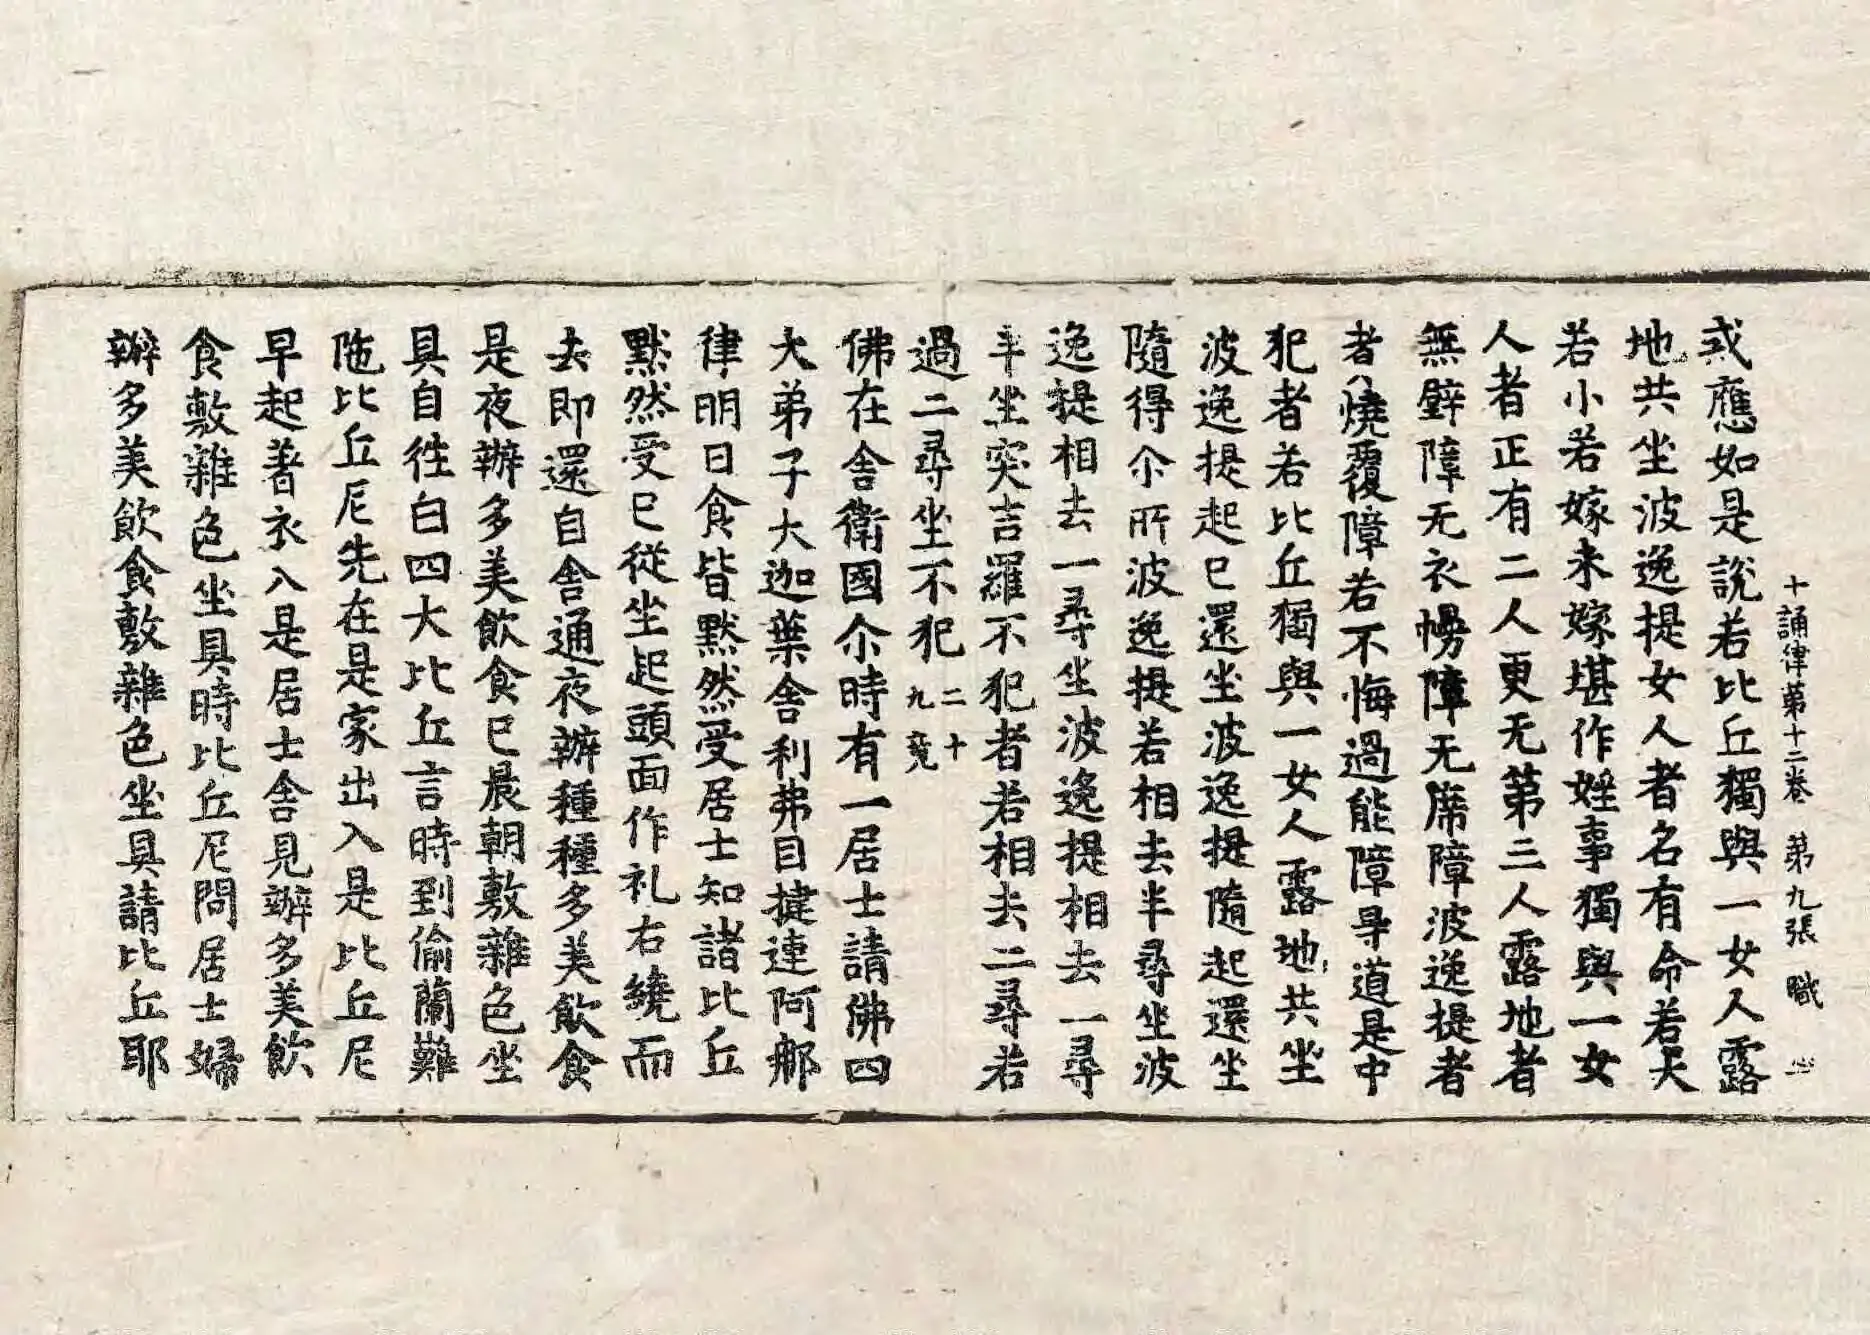 十誦律苐十二卷 苐九張 職
戒應如是說若比丘獨與一女人露
地共坐波逸提女人者名有命若大
若小若嫁未嫁堪作婬事獨與一女
人者正有二人更无苐三人露地者
無壁障无衣幔障无席障波逸提者
者燒覆障若不悔過能障㝵道是中
犯者若比丘獨與一女人露地共坐
波逸提起已還坐波逸提隨起還坐
隨得尒所波逸提若相去半尋坐波
逸提相去一尋坐波逸提相去一尋
半坐突吉羅不犯者若相去二尋若
過二尋坐不犯 二十九竟
佛在舍衛國尒時有一居士請佛四
大弟子大迦葉舍利弗目揵連阿那
律明日食皆默然受居士知諸比丘
默然受已從坐起頭面作礼右繞而
去即還自舍通夜辦種種多美飲食
是夜辦多美飲食已晨朝敷雜色坐
具自往白四大比丘言時到偷蘭難
陁比丘尼先在是家出入是比丘尼
早起著衣入是居士舍見辦多美飲
食敷雜色坐具時比丘尼問居士婦
辦多美飲食敷雜色坐具請比丘耶